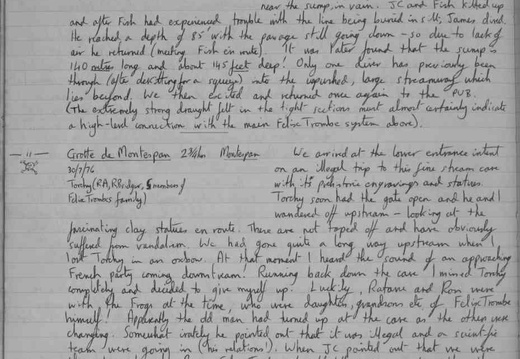 near the sump, in vain. JC and Fish kitted up
and after Fish had experienced trouble with the line being buried in silt, James dived.
He reached a depth of 85' with the passage still going down – so due to lack of
air he returned (meeting Fish en route). It was later found that the sump is
140 metres long and about 145 feet deep! Only one diver has previously been
through (after dekitting for a squeeze) into the unpushed, large streamway which
lies beyond. We then exited and returned once again to the PUB.
(The extremely strong draught felt in the tight sections must almost certainly indicate
a high-level connection with the main Felix Trombe system above).
— 11 — Grotte de Montespan 2¾hrs Montespan We arrived at the lower entrance intent
30/7/76 on an illegal trip to this fine stream cave
Torchy (RA, RBridger, 5 members of with its prehistoric engravings and statues.
Felix Trombes family) Torchy soon had the gate open and he and I
wandered off upstream – looking at the
fascinating clay statues en route. These are not taped off and have obviously
suffered from vandalism. We had gone quite a long way upstream when I
lost Torchy in an oxbow. At that moment I heard the sound of an approaching
French party coming downstream! Running back down the cave I missed Torchy
completely and decided to give myself up. Luckily, and Ron were
with the Frogs at the time, who were daughter, grandsons etc of Felix Trombe
himself! Apparently the old man had turned up at the cave as the others were
changing. Somewhat irately he pointed out that it was illegal and a scientific
team were going in (his relations!). When JC pointed out that we were